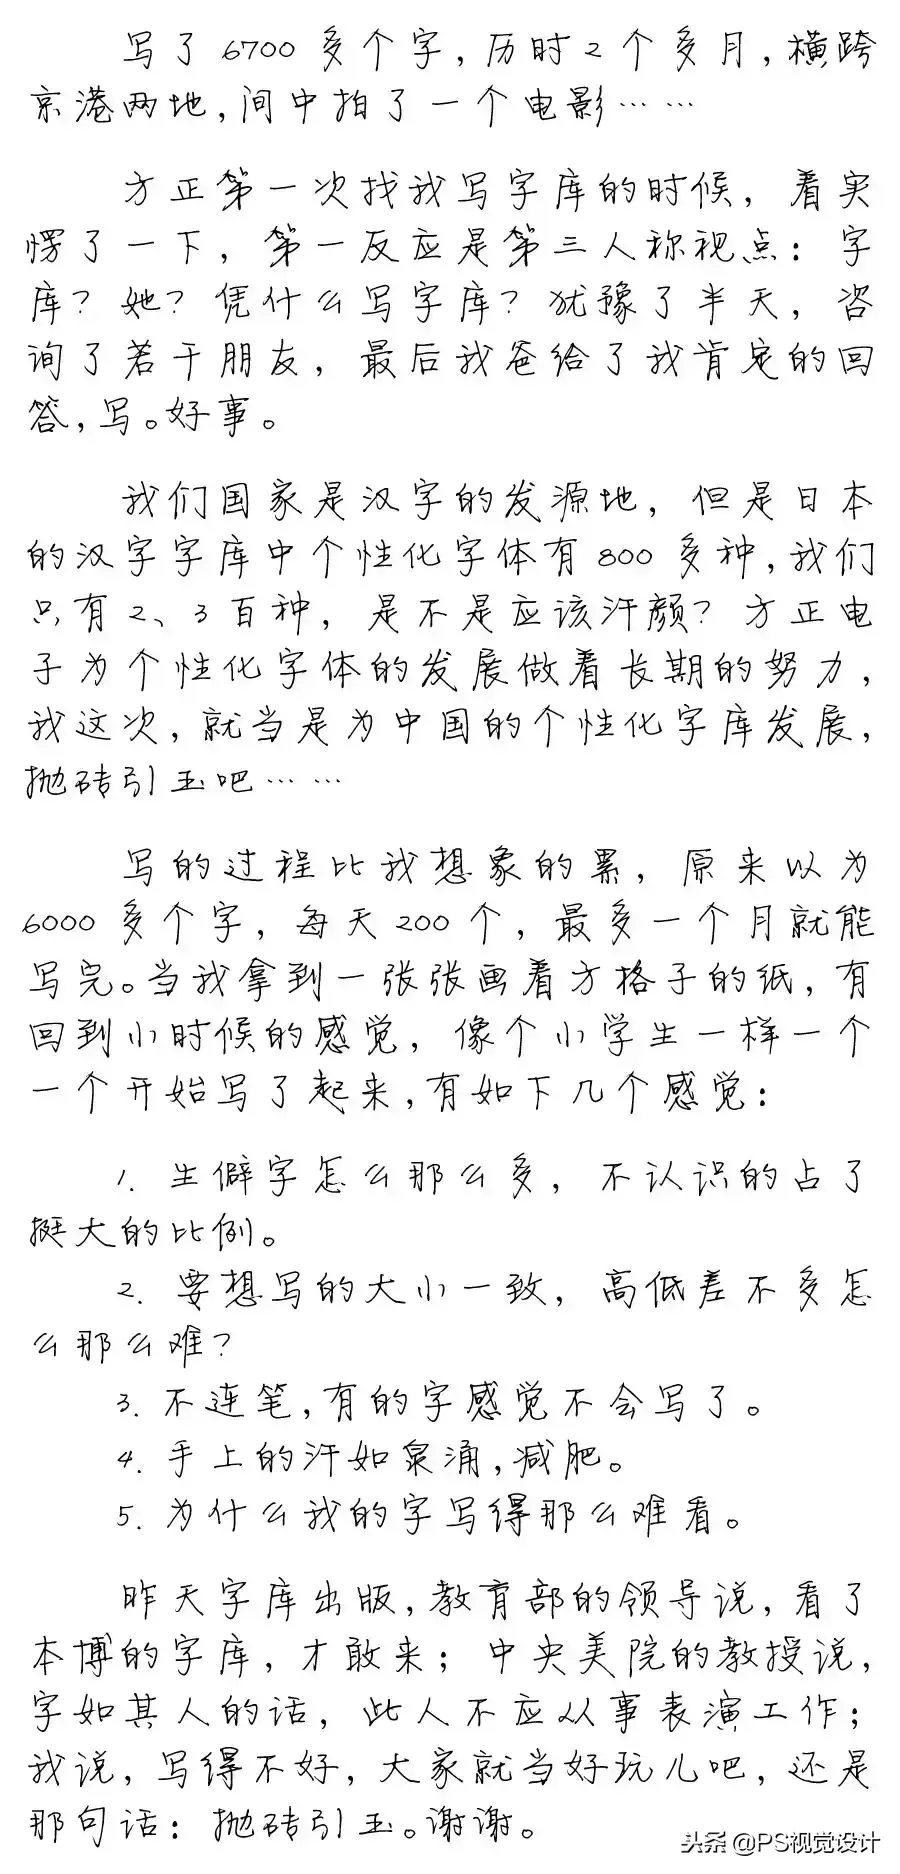 写了6700多个字,历时2个多月,横跨
京港两地,间中拍了一个电影……
方正第一次找我写字库的时候，着实
愣了一下，第一反应是第三人称视点：字
库？她？凭什么写字库？犹豫了半天，咨
询了若干朋友，最后我爸给了我肯定的回
答,写。好事。
我们国家是汉字的发源地，但是日本
的汉字字库中个性化字体有800多种,我们
只有2、3百种，是不是应该汗颜？方正电
子为个性化字体的发展做着长期的努力，
我这次，就当是为中国的个性化字库发展，
抛砖引玉吧……
写的过程比我想象的累，原来以为
6000多个字，每天200个，最多一个月就能
写完。当我拿到一张张画着方格子的纸，有
回到小时候的感觉，像个小学生一样一个
一个开始写了起来,有如下几个感觉：
1. 生僻字怎么那么多，不认识的占了
挺大的比例。
2. 要想写的大小一致，高低差不多怎
么那么难？
3. 不连笔,有的字感觉不会写了。
4. 手上的汗如泉涌,减肥。
5. 为什么我的字写得那么难看。
昨天字库出版,教育部的领导说，看了
本博的字库，才敢来；中央美院的教授说，
字如其人的话，此人不应从事表演工作；
我说，写得不好，大家就当好玩儿吧，还是
那句话：抛砖引玉。谢谢。
头条 @PS视觉设计